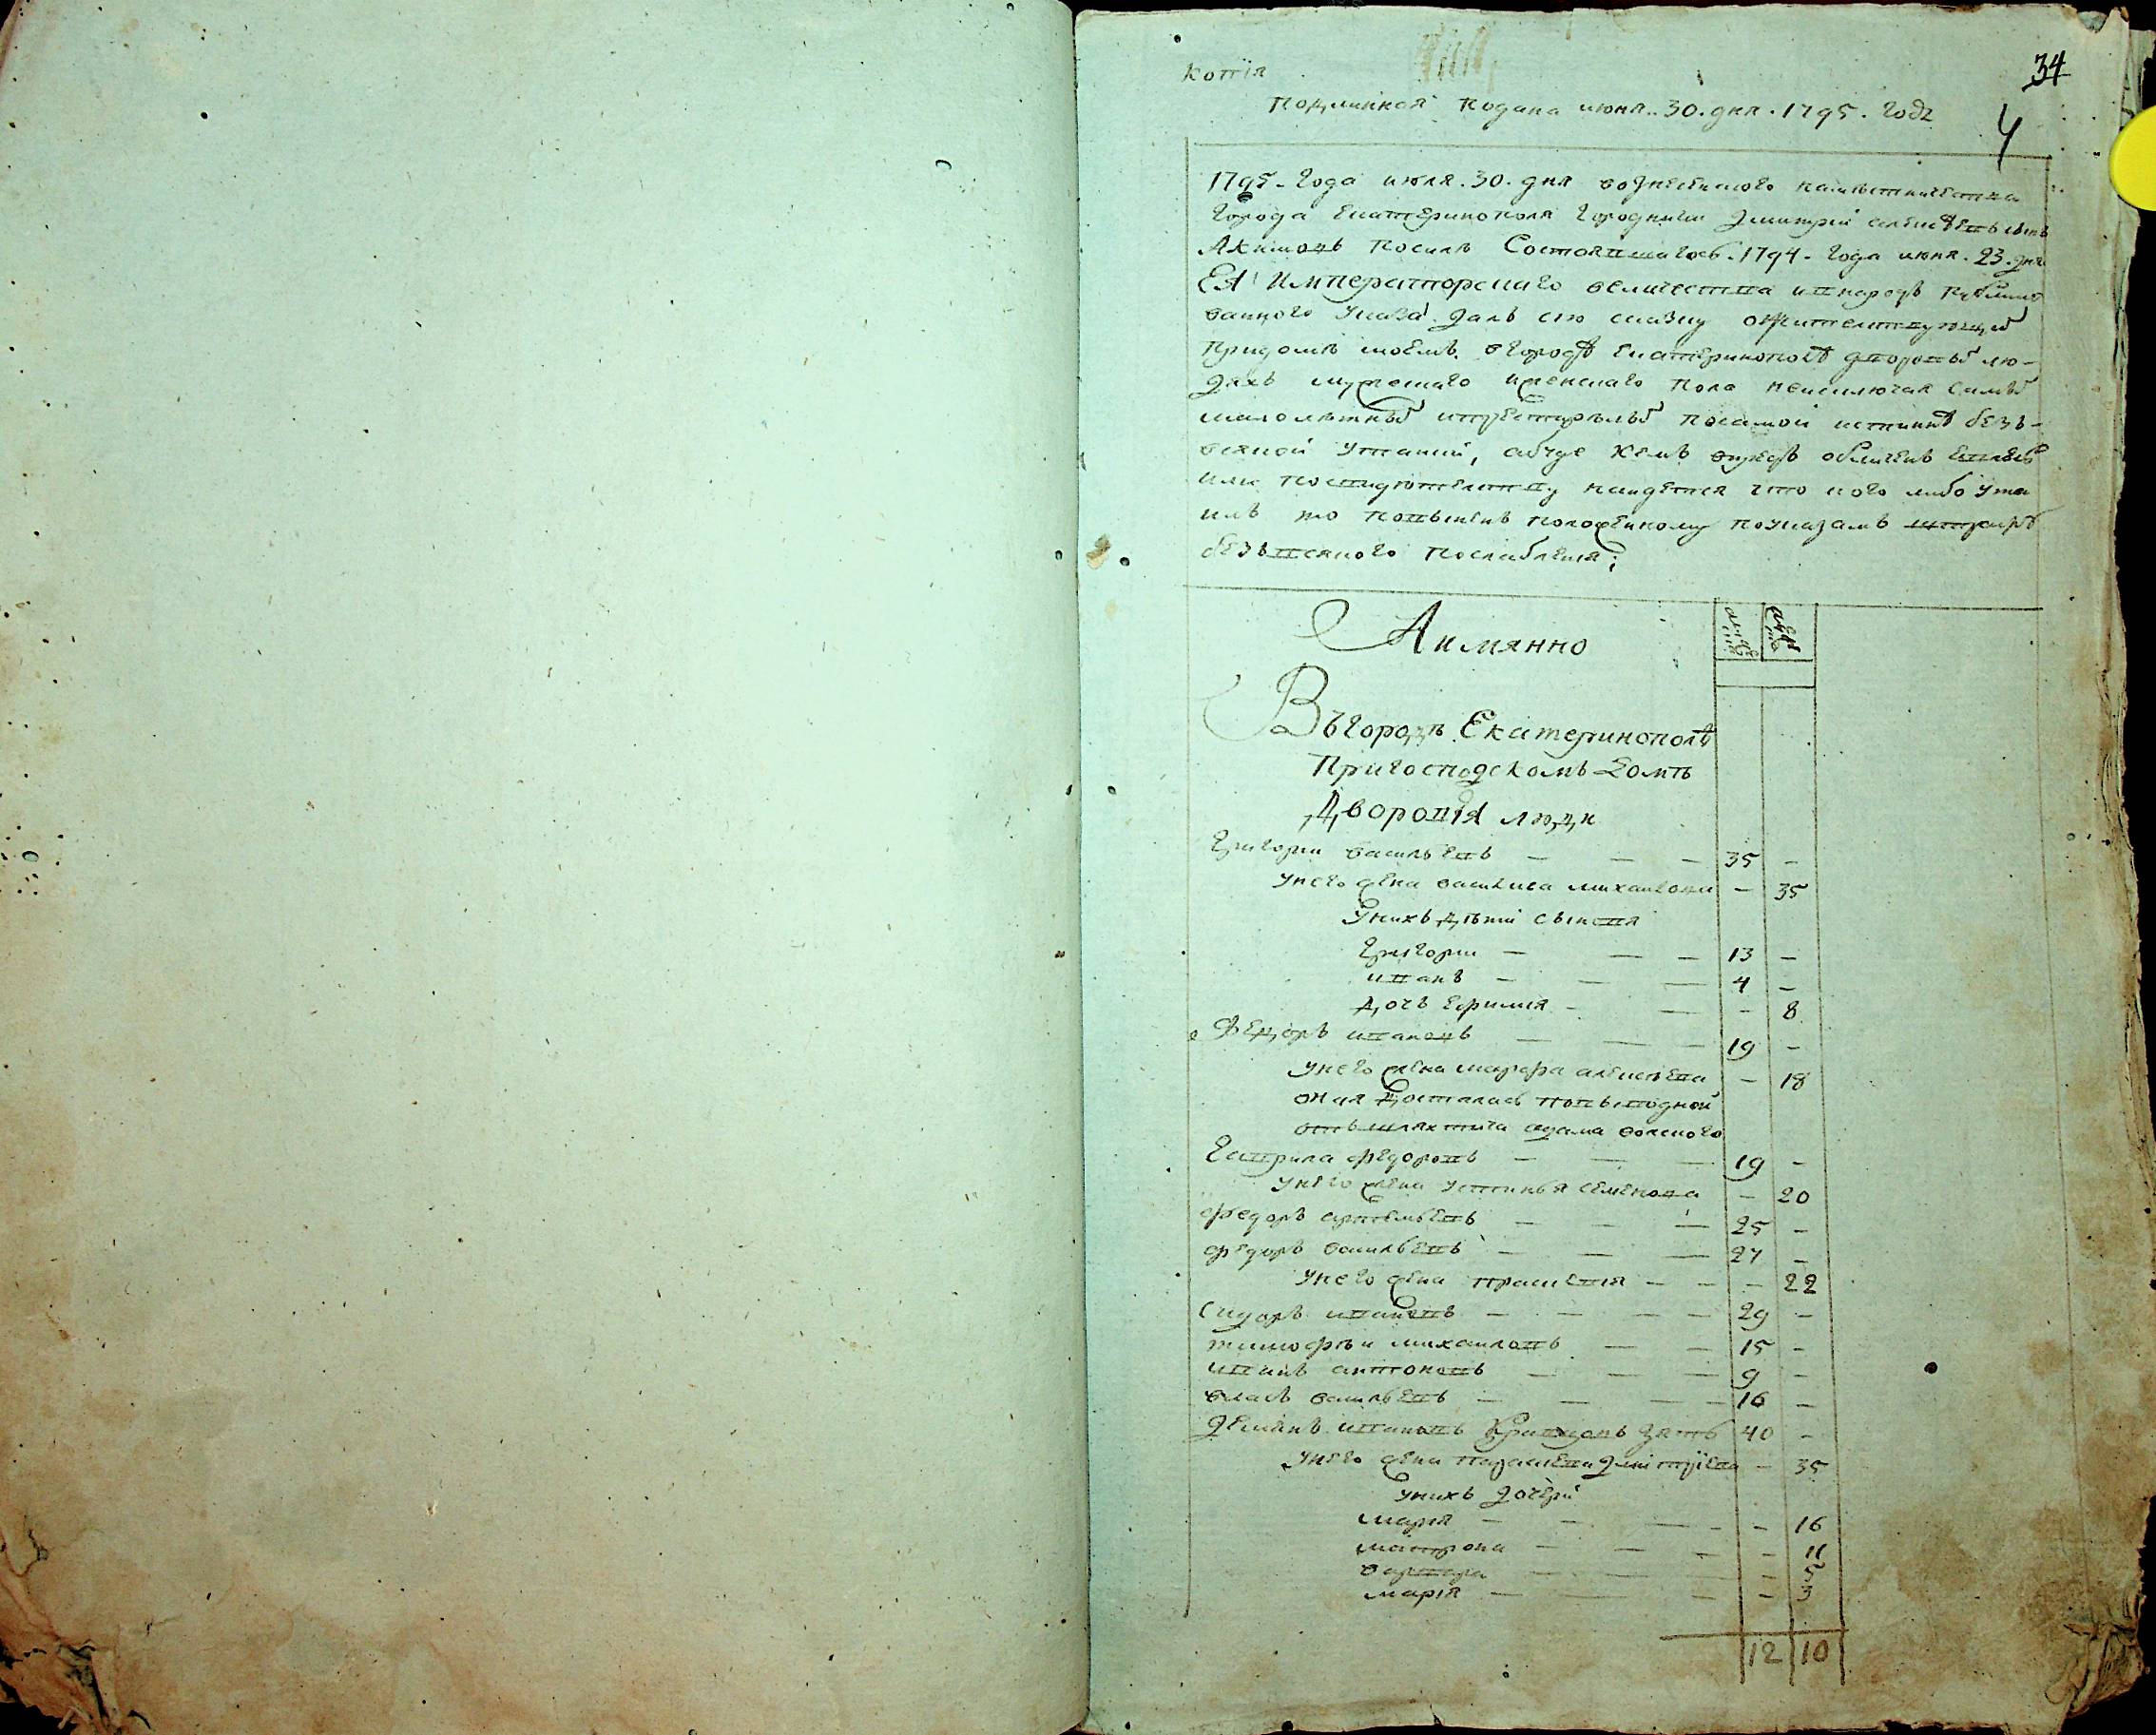 копїя
34
подлинная подана июня 30. дня. 1795. годг
4
1795-года июля. 30. дня вознесенского наместничества
города Екатеринополя городничи Дмитрий алексеевъ сынъ
Акимовъ посиле Состоявшагось. 1794. года июня. 23. дня
ЕЯ Императорскаго величества инародъ публико
ванного указа далъ сию сказку ожителствующих
придоме моемъ вгороде Екатеринополе дворовых лю-
дяхъ мужескаго иженскаго пола неисключая самых
малолетных ипрестарелых посамой истинне безъ-
всякой утайки, абуде кемъ впредь обличенъ
или посвидетелству найдется что кого либо ута
илъ то повиненъ положенному поуказамъ штрафу
безъвсякого послабления;
Аимянно
Въгородѣ Екатеринополѣ
Пригосподскомъ домѣ
Дворовїя люди
Григории васильевъ — — — 35 —
Унего жена василиса михаилова — 35
Унихъ дѣти сыновя
Григории — — — 13 —
иванъ — — — 4 —
дочь ефимия — — — 8
Федоръ ивановъ — — — 19 —
унего жена марфа алексеева — 18
оная досталась повыводной
отъ шляхтича адама волского
Гаврила федоровъ — — — 19 —
унего жена устинья семенова — 20
федоръ артемьевъ — — — 25 —
федоръ васильевъ — — — 27 —
унего жена прасковя — — — 22
Сидоръ ивановъ — — — — 29 —
тимофѣи михаиловъ — — 15 —
иванъ антоновъ — — — 9 —
власъ васильевъ — — — 16 —
Демянъ ивановъ зять 40 —
унего жена парасковя дмитрїева — 35
унихъ дочери
мария — — — — — 16
матрона — — — — — 11
варвара — — — — — 5
марїя — — — — 3
12 10